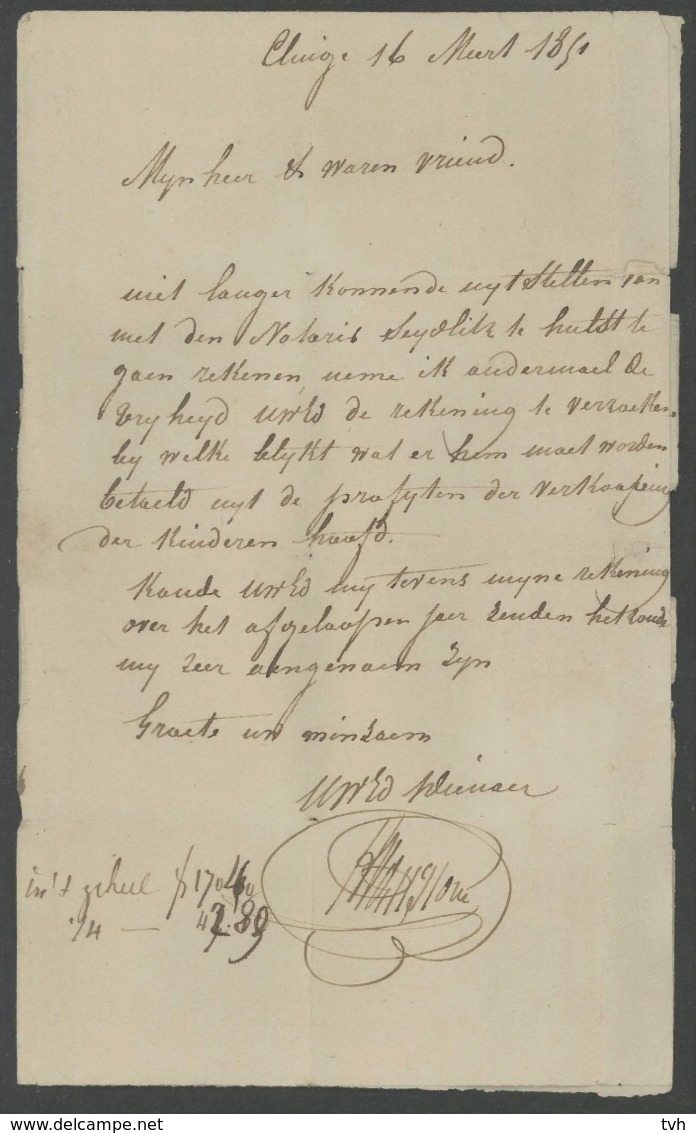 Clinge 16 Meert 1851
Mijn heer & waren vriend.
niet langer konnende uytstellen van
met den Notaris Seydlitz te hulst te
gaen rekenen, neme ik andermael de
vryheyd UWEd de rekening te verzoeken
by welke blykt wat er hem moet worden
betaeld uyt de profyten der verkooping
der kinderen hoofd.
Konde UWEd my tevens myne rekening
over het afgeloopen jaer zenden het konde
my zeer aengenaem zyn
Groete uw minzaem
UWEd Dienaer
in't geheel f 170
1/4 —
www.delcampe.net
tvh